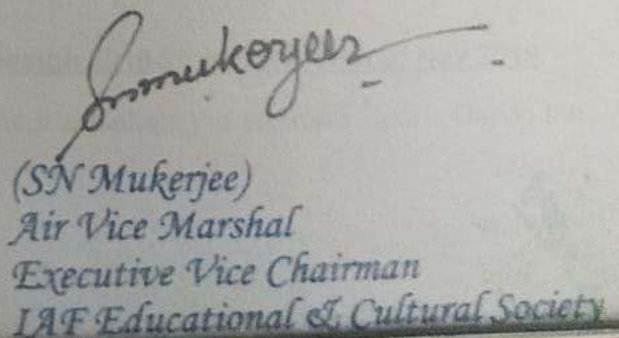 Snmukerjee
(SN Mukerjee)
Air Vice Marshal
Executive Vice Chairman
IAF Educational & Cultural Society